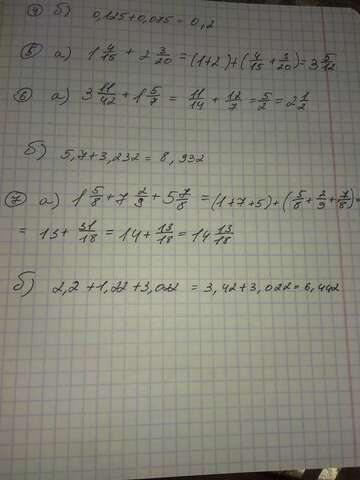 ④ б) 0,125+0,075=0,2
⑤ а) 1 4/15 + 2 3/20 = (1+2)+(4/15+3/20)=3 5/12
⑥ а) 3 11/42 + 1 5/7 = 11/14 + 12/7 = 5/2 = 2 1/2
б) 5,7+3,232=8,932
⑦ а) 1 5/8 + 7 2/9 + 5 7/8 = (1+7+5)+(5/8+2/9+7/8)=
= 13+ 31/18 = 14+ 13/18 = 14 13/18
б) 2,2+1,22+3,022 = 3,42+3,022=6,442